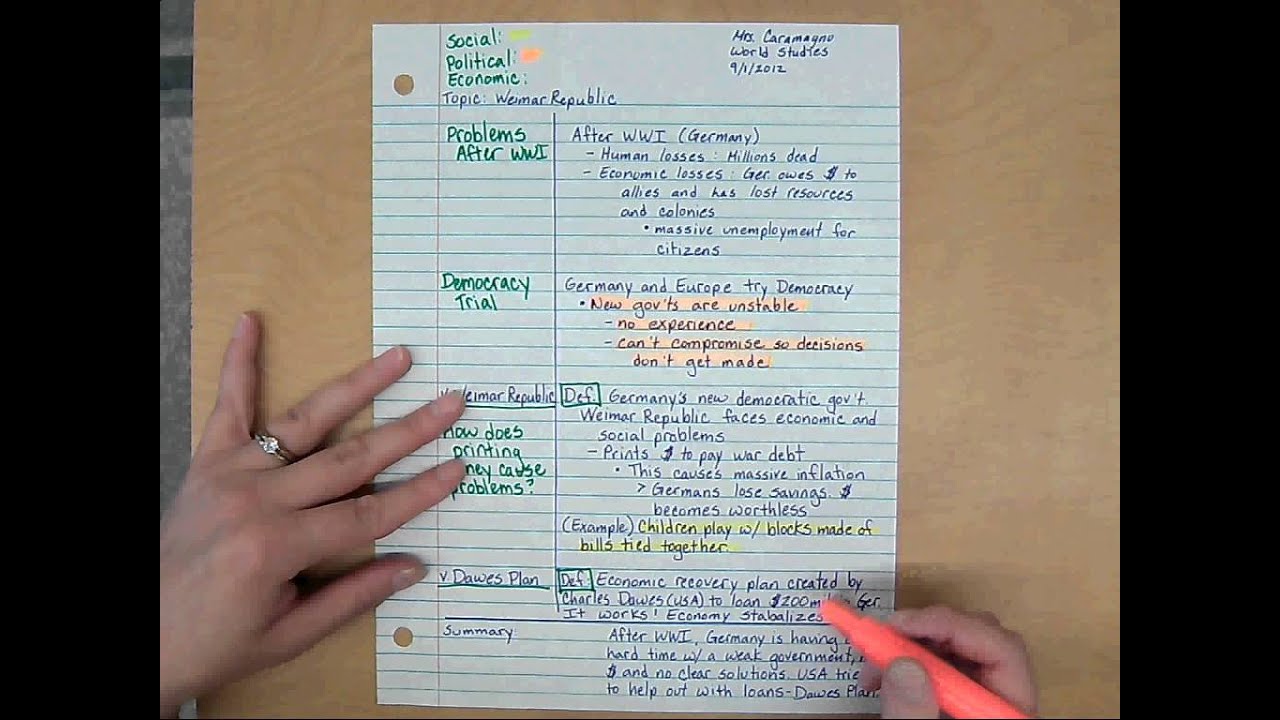 Social:
Political:
Economic:
Topic: Weimar Republic
Mrs. Caramagno
World Studies
9/1/2012
Problems
After WWI
After WWI (Germany)
- Human losses: Millions dead
- Economic losses: Ger. owes $ to
allies and has lost resources
and colonies
• massive unemployment for
citizens
Democracy
Trial
Germany and Europe try Democracy
• New gov'ts are unstable
- no experience
- can't compromise so decisions
don't get made
Weimar Republic
How does
printing
cause
problems?
Def: Germany's new democratic gov't.
Weimar Republic faces economic and
social problems
- Prints $ to pay war debt
• This causes massive inflation
> Germans lose savings. $
becomes worthless
(Example) Children play w/ blocks made of
bills tied together.
v. Dawes Plan
Def: Economic recovery plan created by
Charles Dawes (USA) to loan $200 Ger.
It works! Economy stabalizes
Summary:
After WWI, Germany is having
hard time w/ a weak government,
$ and no clear solutions. USA
to help out with loans - Dawes Plan.